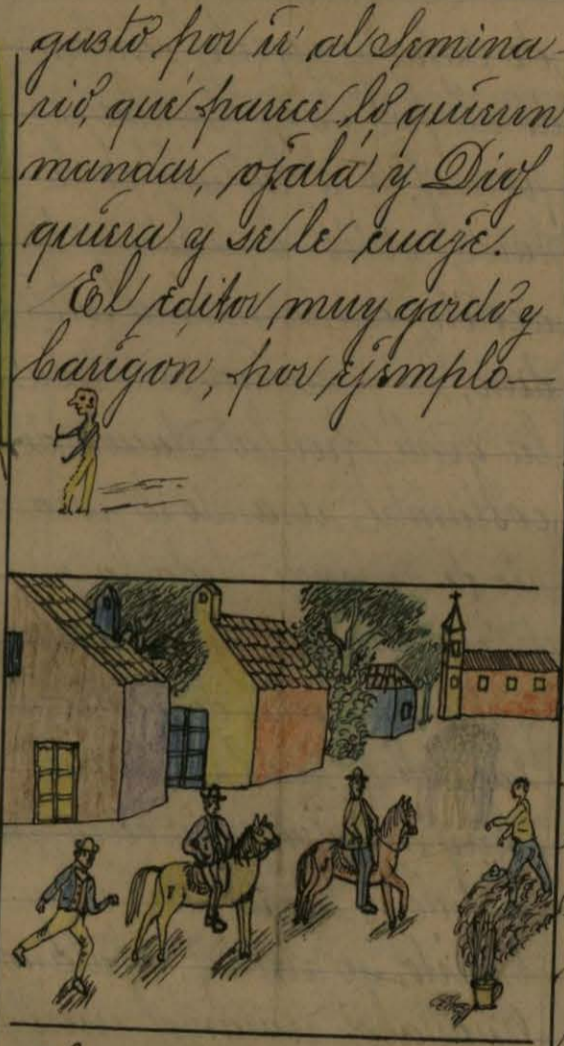 gusto por ir al Semina-
rio, qué parece lo quieren
mandar, ojalá y Dios
quiera y se le cuaje.
El editor muy gordo y
barigon, por ejemplo—